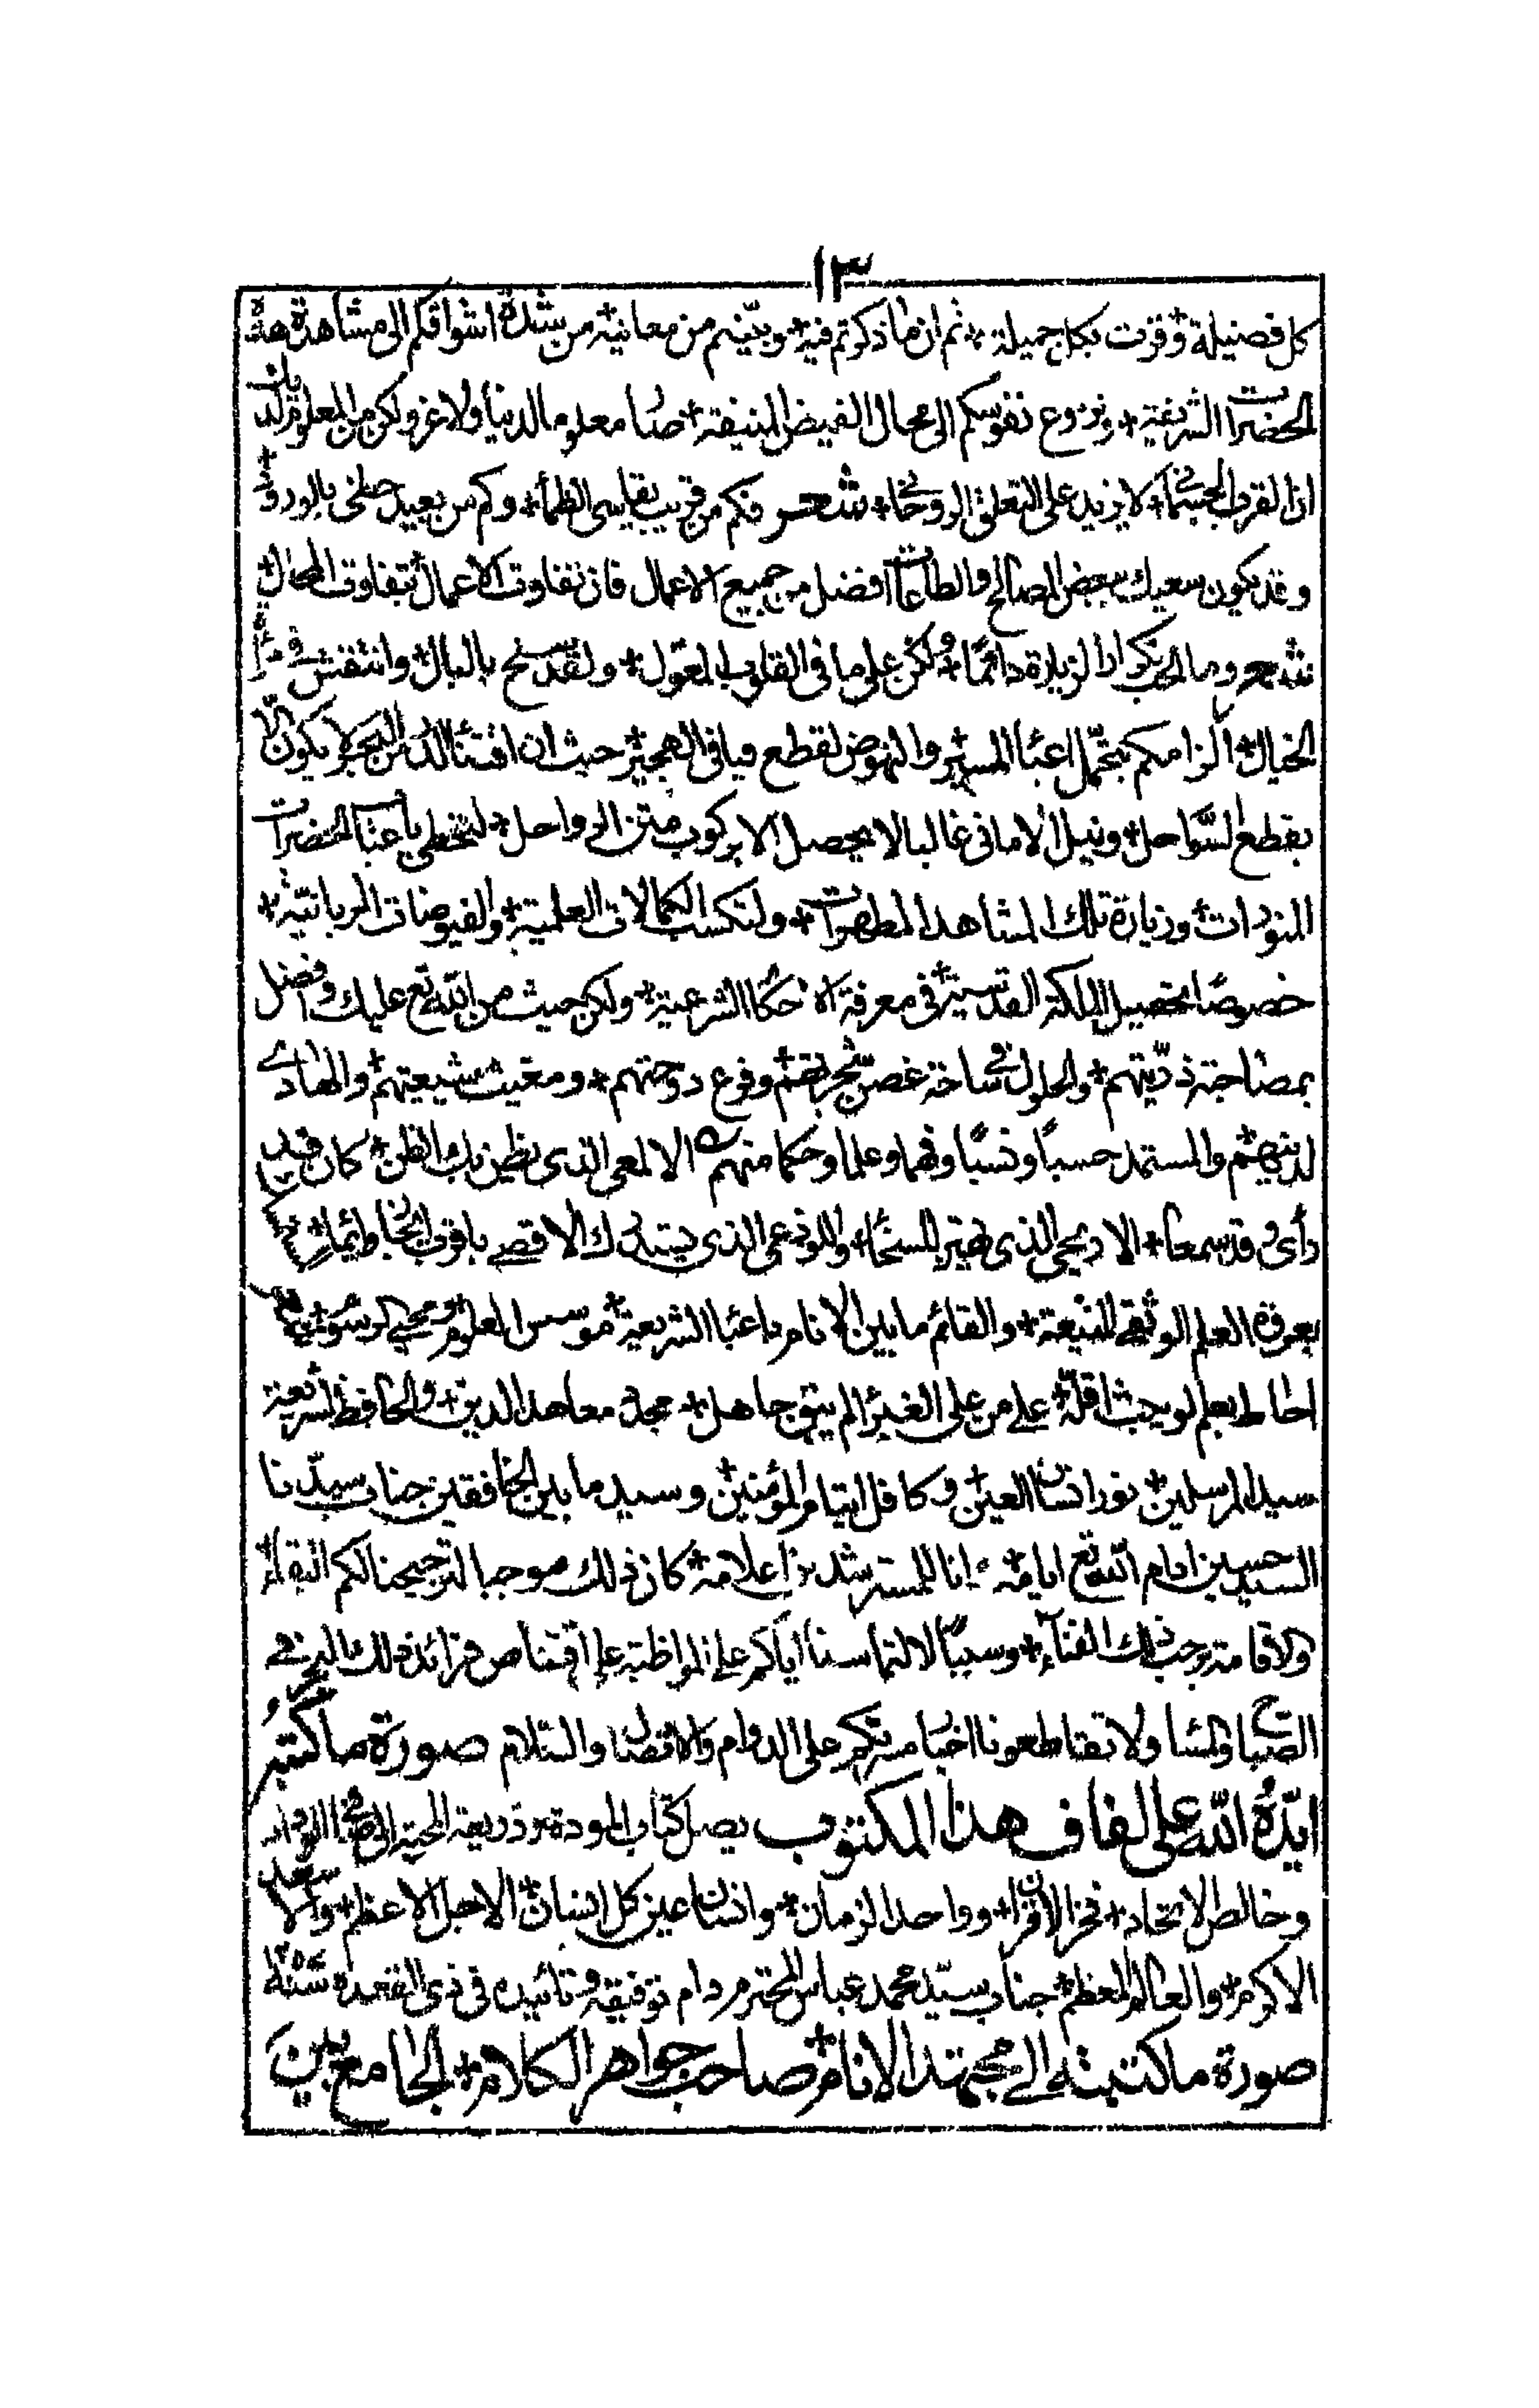 ١٣
كل فضيلة وفزت بكل جميلة ثم ان ما ذكرتم فيه وبيّنتم من معانيه من شدة اشواقكم الى مشاهدة هذه
الحضرات الشريفة ونزوع نفوسكم الى محال الفيض المنيفة صار معلوما لدينا ولا غرو ولكن من المعلوم لديك
ان القرب الجسماني لا يزيد على التعلق الروحاني شعر فكم من قريب يقاسى الظمأ وكم من بعيد حظى بالورود
وقد يكون سعيك ببعض المصالح والطاعات افضل من جميع الاعمال فان تفاوت الاعمال بتفاوت المحال
شعر وما الحب تكرار الزيارة دائمًا ولكن على ما فى القلوب المعول ولقد سنح بالبال وانتقش فى مرآة
الخيال الزامكم بتحمل اعباء المسير والنهوض لقطع فيافى الهجير حيث ان اقتناء اللآلى من البحر لا يكون الا
بقطع السواحل ونيل الامانى غالبا لا يحصل الا بركوب متن الرواحل لتحظى باعتاب الحضرات
المنورات وزيارة تلك المشاهد المطهرات ولتكسب الكمالات العلمية والفيوضات الربانية
خصوصًا تحصيل الملكة القدسية فى معرفة الاحكام الشرعية ولكن حيث من الله تع عليك وافضل
بمصاحبة ذريتهم والحلول فى ساحة غصن شجرتهم وفرع دوحتهم ومغيث شيعتهم والهادى
لدينهم والمستمد حسبًا ونسبًا وفهما وعلما وحكما منهم الالمعى الذى يظن بك الظن كان قد
رأى وقد سمعا الاريحى الذى يهتز للسخاء واللوذعى الذى يتدرك الاقصى باقرب
بعروة العلم الوثقى المنيعة والقائم ما بين الانام باعباء الشريعة موسس العلوم ومحيي
احاط بعلم لو يبث اقله على من على الغبراء لم يبق جاهل مجدد معاهد الدين والحافظ لشريعة
سيد المرسلين نور انسان العين وكافل ايتام المؤمنين وسيد ما بين الخافقين جناب سيدنا
السيد حسين ادام الله تع ايامه انا للمسترشد اعلامه كان ذلك موجبا لترجيحنا لكم البقاء
والاقامة برحب ذلك الفناء وسببًا لالتماسنا اياكم على المواظبة على اقتناص فرائد ذلك البحر فى
الصباح والمساء ولا تقاطعونا اخبار مسرتكم على الدوام والاتصال والسلام صورة ما كتبه
ايّده الله على لفاف هذا المكتوب يصل كتاب المودة وذريعة المحبة الى
وخالص الاتحاد فخر الاقران وواحد الزمان وانسان عين كل انسان الاجل الاعظم والاسعد
الاكرم والعالم المعظم جناب سيد محمد عباس المحترم دام توفيقه وتائيده فى ذى القعدة سنة
صورة ما كتبته الى مجتهد الانام صاحب جواهر الكلام الجامع بين